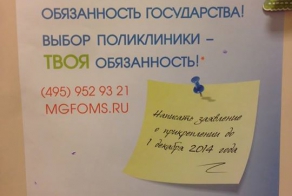 ОБЯЗАННОСТЬ ГОСУДАРСТВА!
ВЫБОР ПОЛИКЛИНИКИ –
ТВОЯ ОБЯЗАННОСТЬ!*
(495) 952 93 21
MGFOMS.RU
Написать заявление
о прикреплении до
1 декабря 2014 года